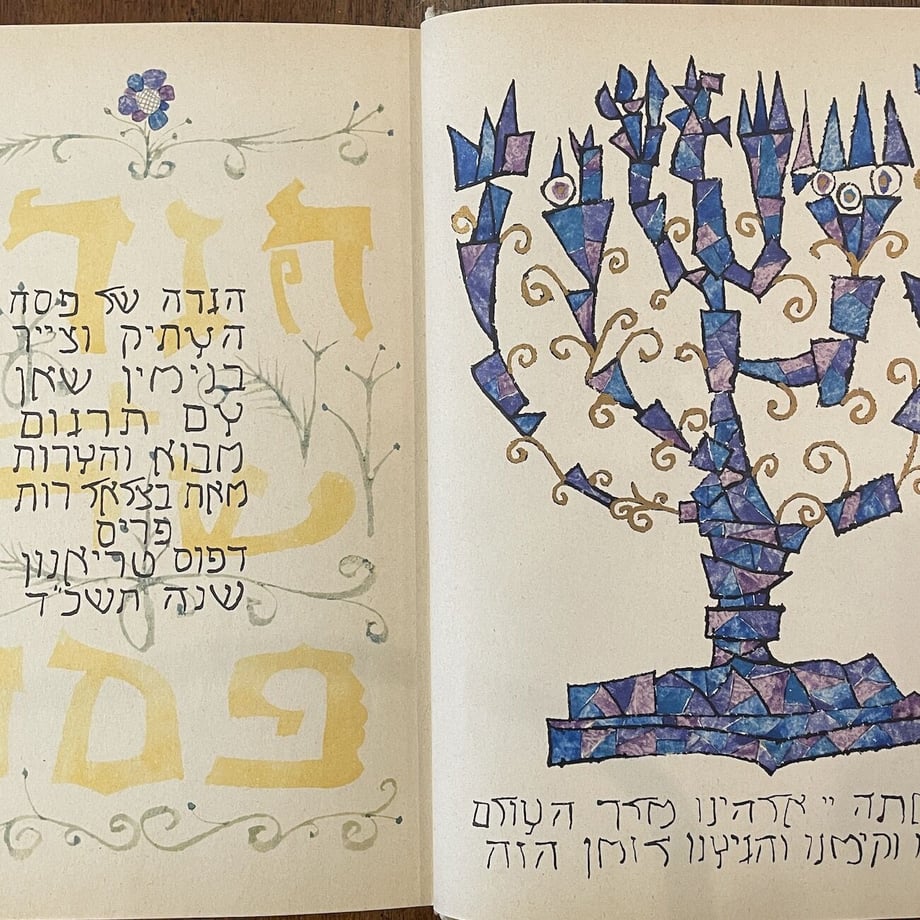 הגדה של פסח
העתיק וצייר
בנימין שאן
עם תרגום
מבוא והערות
מאת בצלאל רות
פריס
דפוס טריאנון
שנה תשכ״ד
יי אלהינו מלך העולם
וקימנו והגיענו לזמן הזה